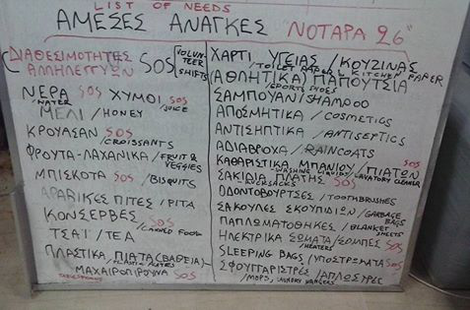 LIST OF NEEDS
ΑΜΕΣΕΣ ΑΝΑΓΚΕΣ ΝΟΤΑΡΑ 26
ΔΙΑΘΕΣΙΜΟΤΗΤΕΣ ΑΛΛΗΛΕΓΓΥΩΝ SOS VOLUNTEER SHIFTS
ΝΕΡΑ SOS ΧΥΜΟΙ SOS
/WATER /JUICE
ΜΕΛΙ / HONEY
ΚΡΟΥΑΣΑΝ SOS
/CROISSANTS
ΦΡΟΥΤΑ-ΛΑΧΑΝΙΚΑ / FRUIT & VEGGIES
ΜΠΙΣΚΟΤΑ SOS / BISQUITS
ΑΡΑΒΙΚΕΣ ΠΙΤΕΣ / PITA
ΚΟΝΣΕΡΒΕΣ SOS
/CANNED FOOD
ΤΣΑΪ / TEA
ΠΛΑΣΤΙΚΑ ΠΙΑΤΑ (ΒΑΘΕΙΑ)
/PLASTIC PLATES
ΜΑΧΑΙΡΟΠΙΡΟΥΝΑ SOS
ΧΑΡΤΙ ΥΓΕΙΑΣ / ΚΟΥΖΙΝΑΣ
/TOILET PAPER & KITCHEN PAPER
(ΑΘΛΗΤΙΚΑ) ΠΑΠΟΥΤΣΙΑ
/SPORTS SHOES
ΣΑΜΠΟΥΑΝ / SHAMPOO
ΑΠΟΣΜΗΤΙΚΑ / COSMETICS
ΑΝΤΙΣΗΠΤΙΚΑ / ANTISEPTICS
ΑΔΙΑΒΡΟΧΑ / RAINCOATS
ΚΑΘΑΡΙΣΤΙΚΑ ΜΠΑΝΙΟΥ / ΠΙΑΤΩΝ SOS
/WASHING LIQUID / LAVATORY CLEANER
ΣΑΚΙΔΙΑ ΠΛΑΤΗΣ SOS
/RUCKSACKS
ΟΔΟΝΤΟΒΟΥΡΤΣΕΣ / TOOTHBRUSHES
ΣΑΚΟΥΛΕΣ ΣΚΟΥΠΙΔΙΩΝ / GARBAGE BAGS
ΠΑΠΛΩΜΑΤΟΘΗΚΕΣ / BLANKET SHEETS
ΗΛΕΚΤΡΙΚΑ ΣΩΜΑΤΑ / ΣΟΜΠΕΣ SOS
/HEATERS
SLEEPING BAGS / ΥΠΟΣΤΡΩΜΑΤΑ SOS
ΣΦΟΥΓΓΑΡΙΣΤΡΕΣ / ΑΠΛΩΣΤΡΕΣ
/MOPS, LAUNDRY HANGERS